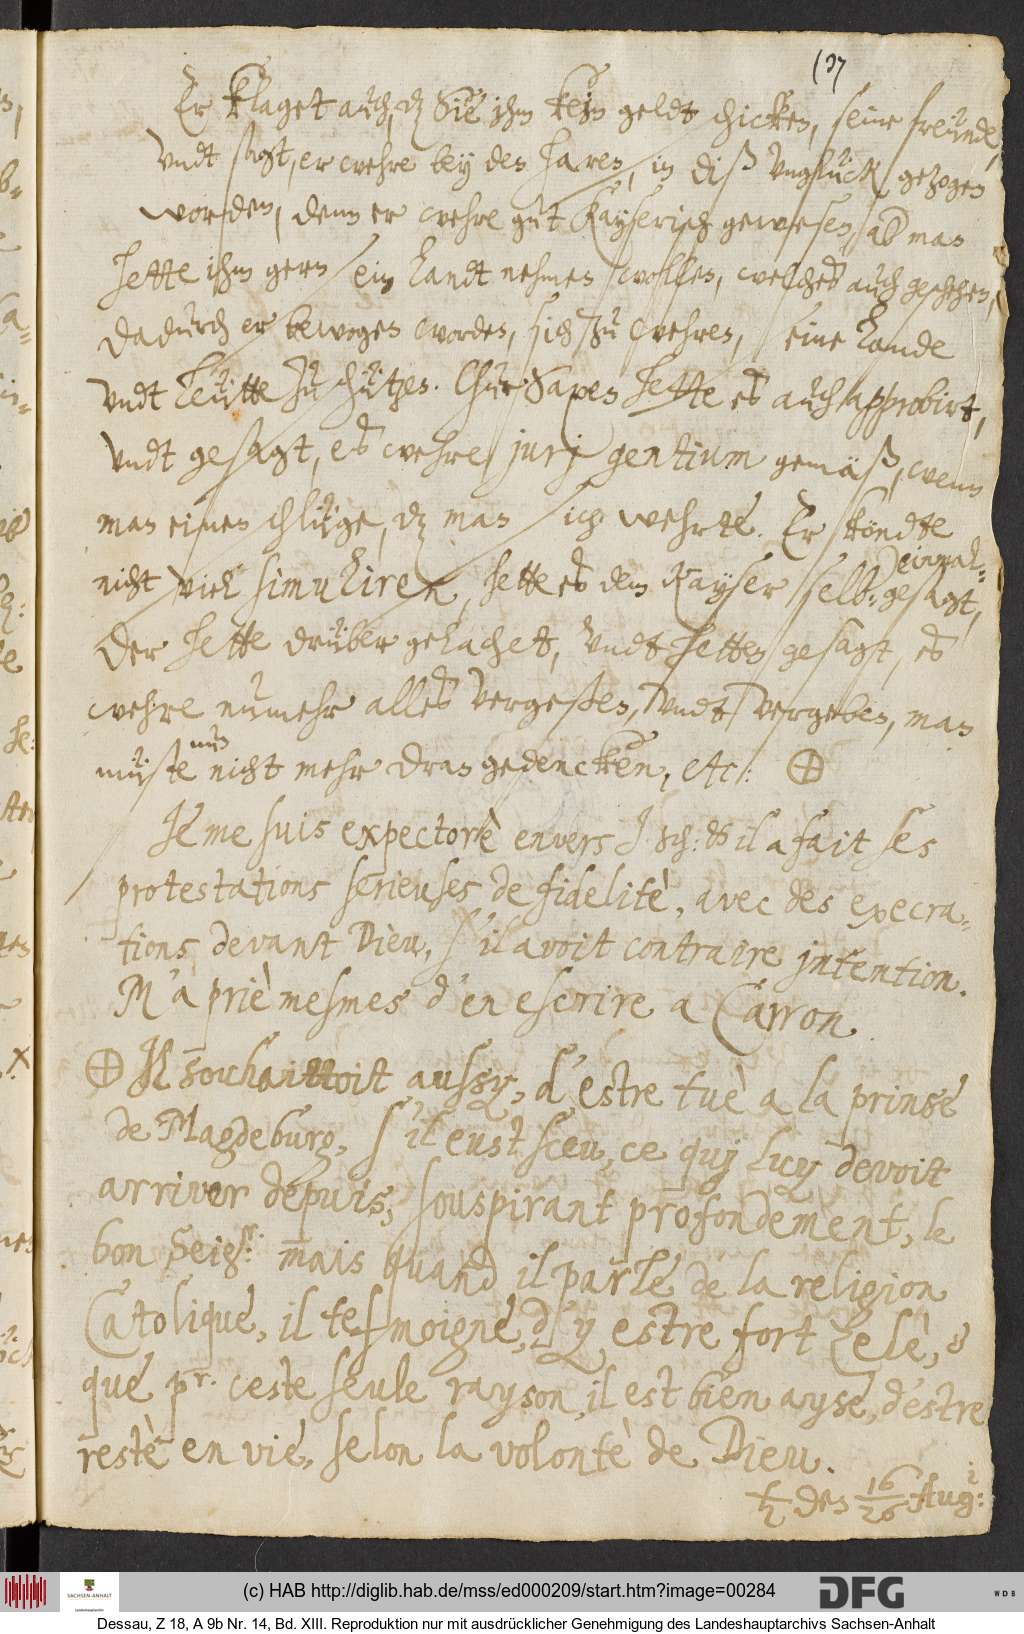 137
Er klaget auch, dz Sie ihm kein geldt schicken, seine freünde,
Vndt sagt, er wehre bey den haren, in diß Vnglück gezogen
worden, denn er wehre gut Kayserisch gewesen, ab man
hette ihm gern sein Landt nehmen wollen, welches auch geschehen,
dadurch er bewogen worden, sich zu wehren, seine Lande
Vndt Leütte zu schützen. Chur Saxen hette es auch approbirt,
Vndt gesagt, es wehre jurj gentium gemäß, wenn
man einen schlüge, dz man sich wehrte. Er köndte
nicht viel simuliren, hette es dem Kayser selb: einmal= gesagt,
der hette drüber gelachet, Vndt hette gesagt, es
wehre numehr alles Vergeßen, Vndt Vergeben, man
müste nun nicht mehr dran gedencken, etc: ⊕
Je me suis expectorè envers J. Sch: et il a fait ses
protestations serieuses de fidelitè, avec des execra=
tions devant Dieu, s'il avoit contraire jntention.
M'a priè mesmes d'en escrire a Carron.
⊕ Il souhaittoit aussy, d'estre tuè a la prinse
de Magdeburg, s'il eust sceu, ce quj luy devoit
arriver depuis, souspirant profondement, le
bon Seigr: mais quand il parle de la religion
Catolique, il tesmoigne, d'y estre fort zelè, &
que pr. ceste seule rayson, il est bien aysè, d'estre
restè en vie, selon la volontè de Dieu.
♄ den 16/26 Augi:
(c) HAB http://diglib.hab.de/mss/ed000209/start.htm?image=00284
SACHSEN-ANHALT
Landeshauptarchiv
DFG
WDB
Dessau, Z 18, A 9b Nr. 14, Bd. XIII. Reproduktion nur mit ausdrücklicher Genehmigung des Landeshauptarchivs Sachsen-Anhalt